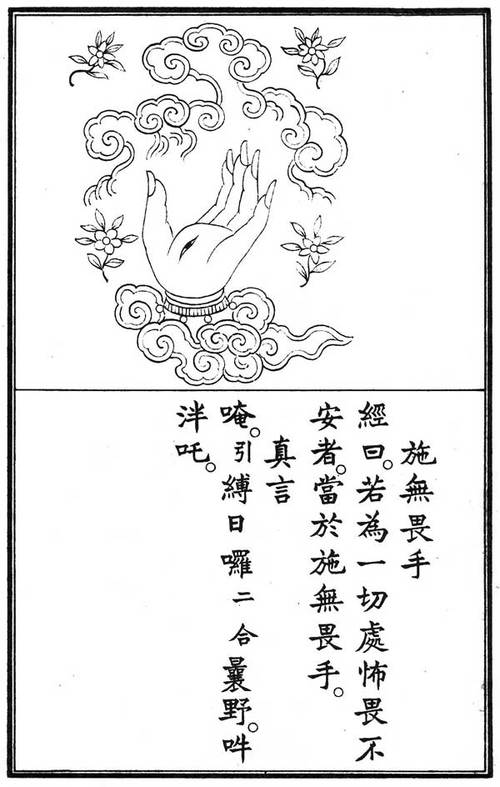 施無畏手
經曰。若為一切處怖畏不
安者。當於施無畏手。
真言
唵。引縛日囉二合曩野。吽
泮吒。